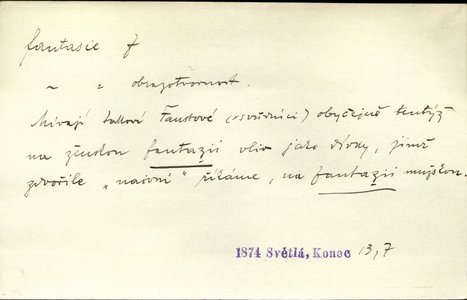 fantasie f
~ = obrazotvornost.
Mívají takoví Faustové (osvůdníci) obyčejně tentýž
na ženskou fantazii vliv jako dívky, jimž
zdvořile „naivní" říkáme, na fantazii mužskou.
1874 Světlá, Konec 13,7